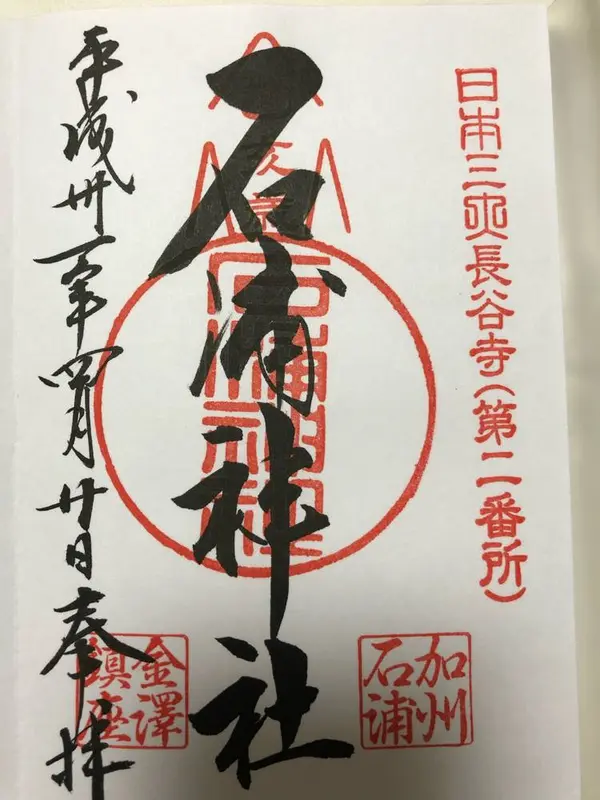 日本三大長谷寺(第二番所)
加州
石浦
石浦神社
金澤
鎮座
平成卅一年四月廿日奉拝